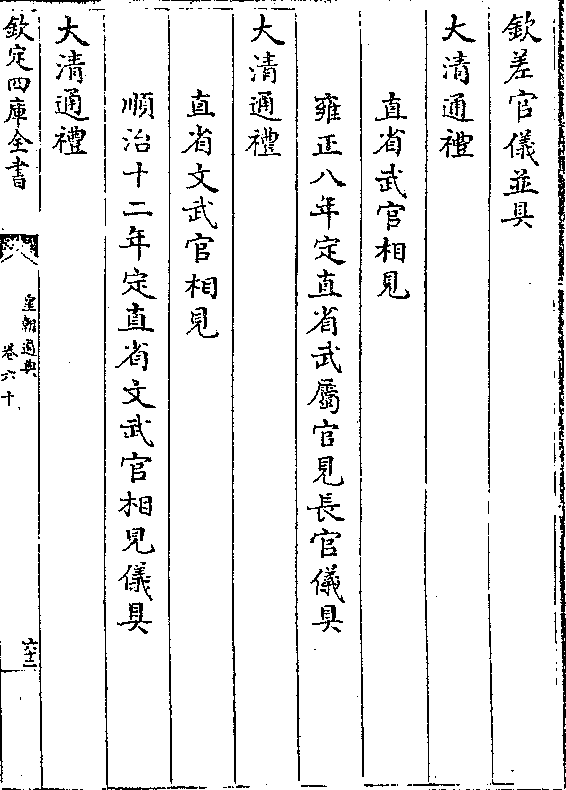 欽差官儀並具
大清通禮
直省武官相見
雍正八年定直省武屬官見長官儀具
大清通禮
直省文武官相見
順治十二年定直省文武官相見儀具
大清通禮
欽定四庫全書
皇朝通典
卷六十
六十二